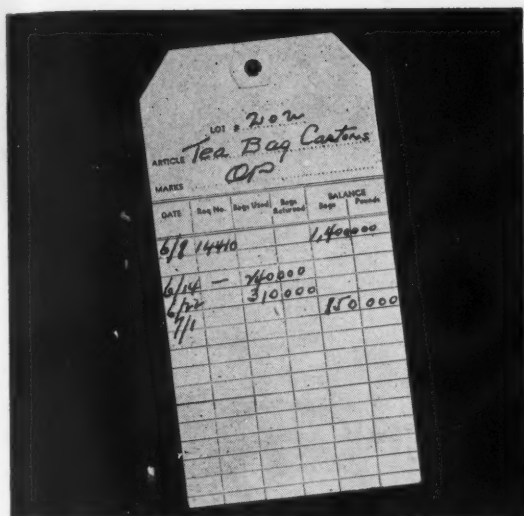 LOT # 202
ARTICLE Tea Bag Cartons
MARKS OP
DATE Req No. Bags Used Bags Returned BALANCE Bags Pounds
6/8 14410 1,400000
6/14 — 240000
6/22 310000
7/1 850000